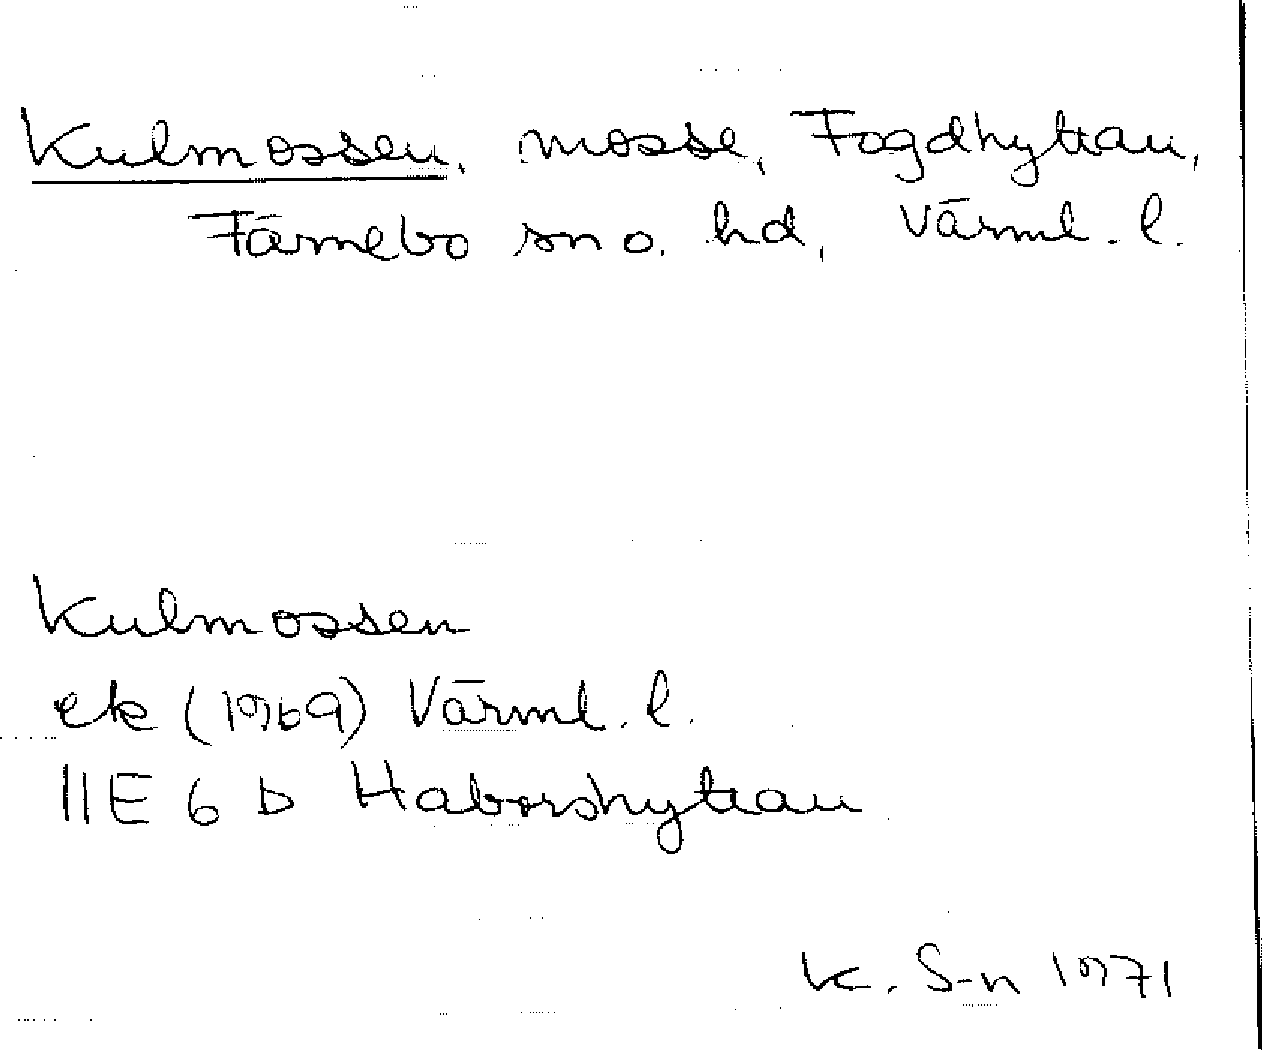 Kulmossen, mosse, Fogdhyttan,
Färnebo sn o. hd, Värml. l.
Kulmossen
ek (1969) Värml. l.
11E 6 b Haborshyttan
K. S-n 1971